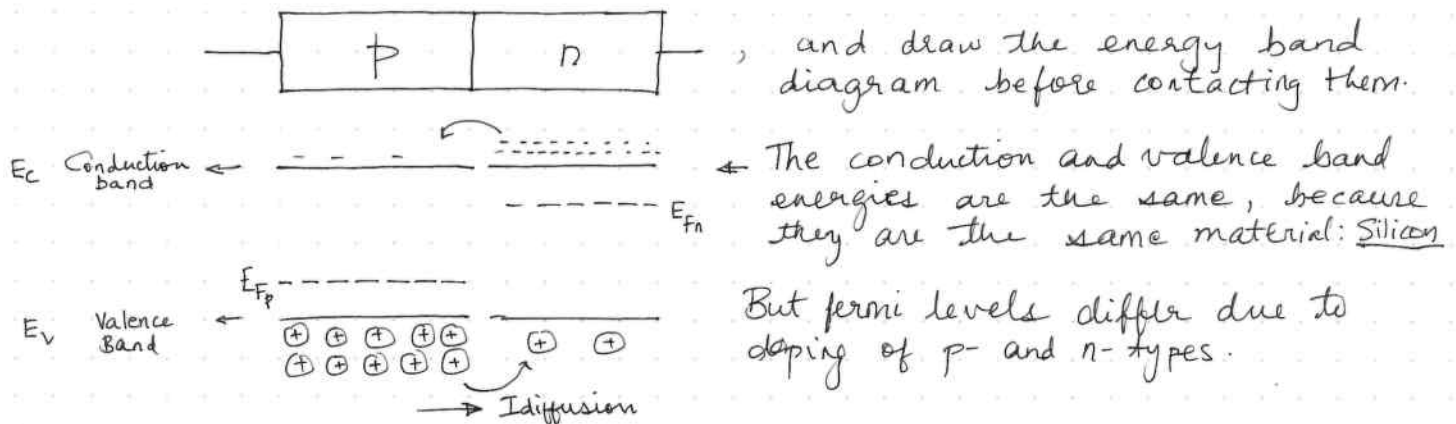 p n , and draw the energy band
diagram before contacting them.
Ec Conduction band ← ← The conduction and valence band
energies are the same, because
EFn they are the same material: Silicon
EFp But fermi levels differ due to
Ev Valence Band ← doping of p- and n-types.
→ Idiffusion